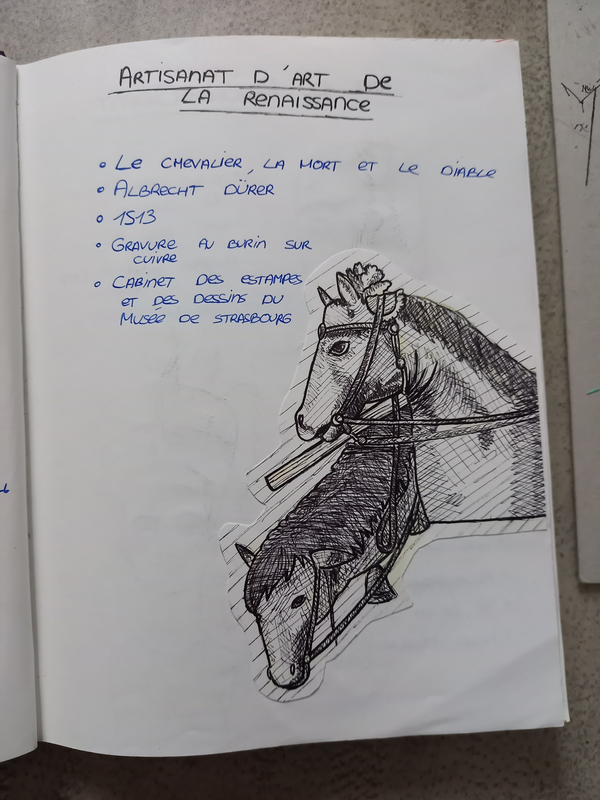 ARTISANAT D'ART DE
LA RENAISSANCE
• LE CHEVALIER, LA MORT ET LE DIABLE
• ALBRECHT DÜRER
• 1513
• GRAVURE AU BURIN SUR
CUIVRE
• CABINET DES ESTAMPES
ET DES DESSINS DU
MUSÉE DE STRASBOURG